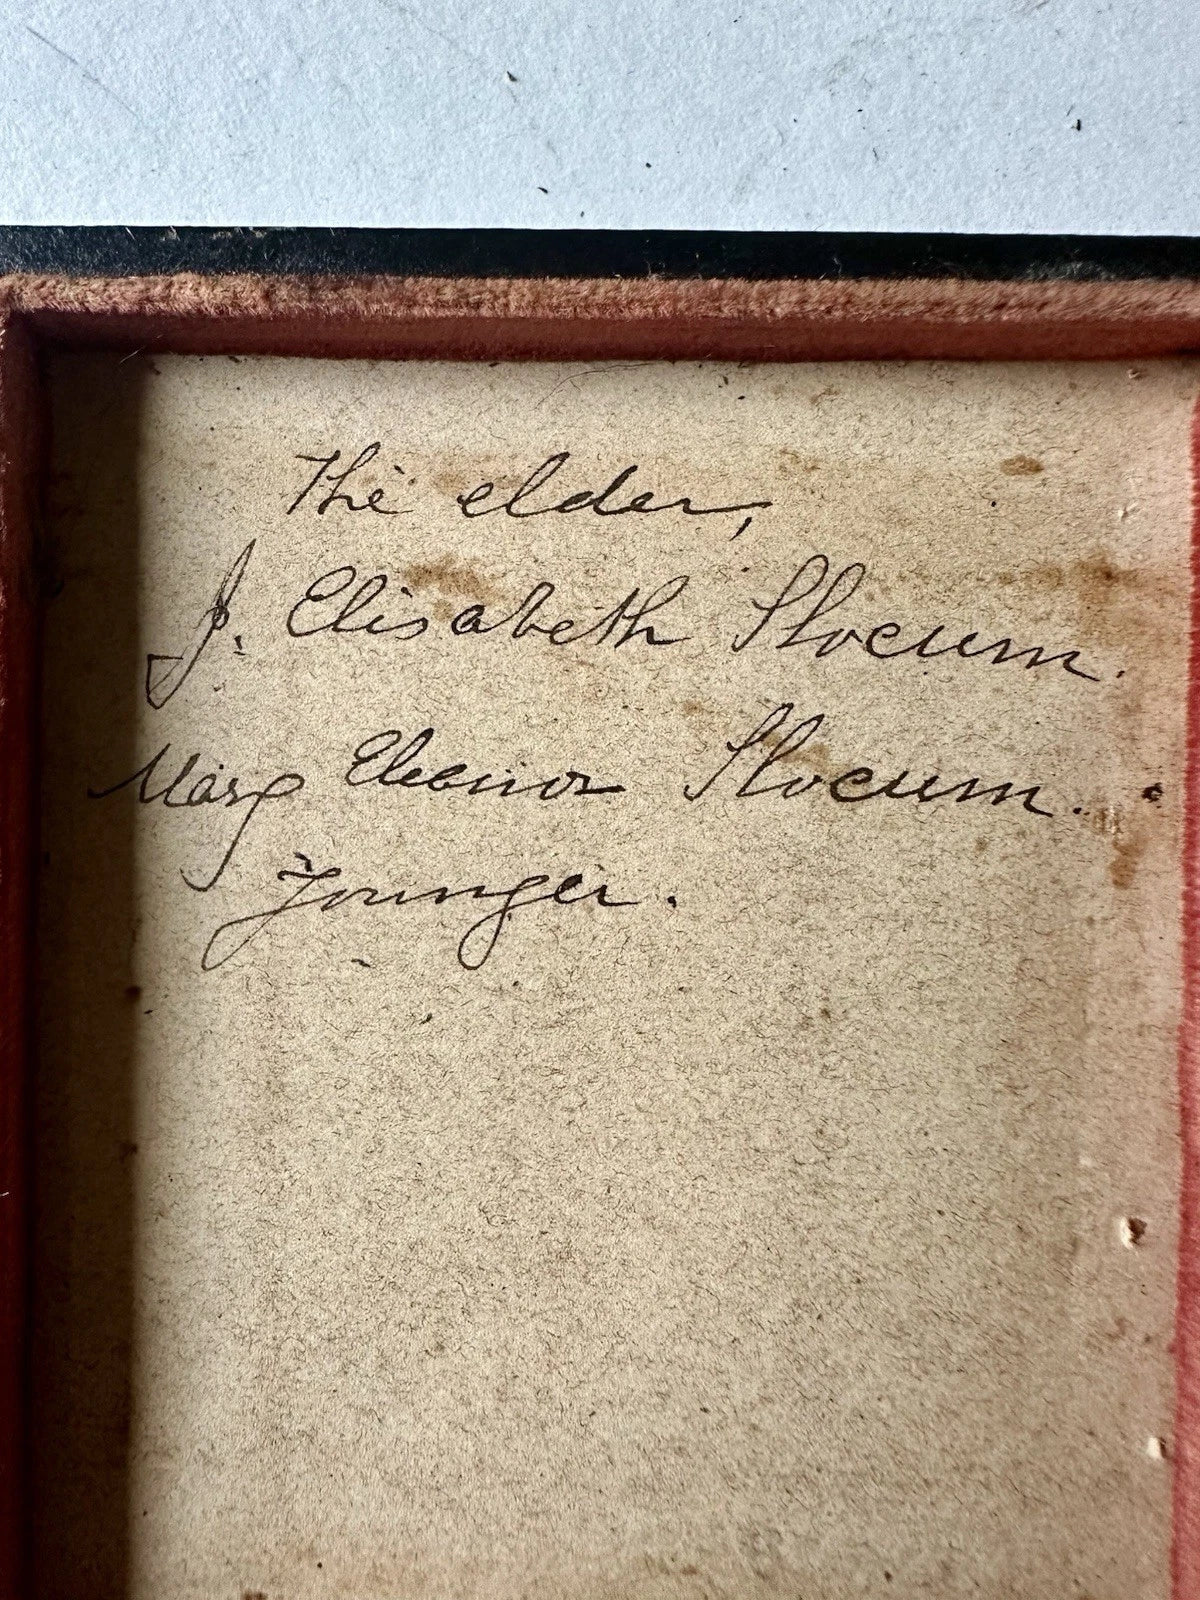 The elder,
J. Elisabeth Slocum.
Mary Eleanor Slocum.
Younger.